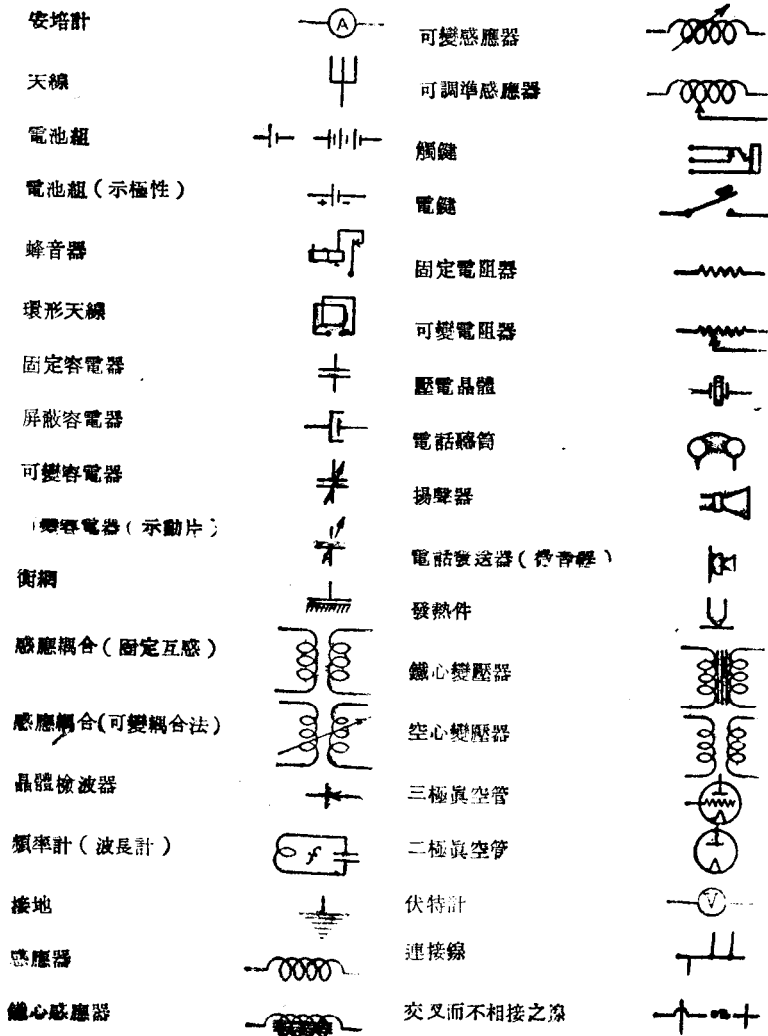 安培計
A
天線
電池組
電池組（示極性）
蜂音器
環形天線
固定容電器
屏蔽容電器
可變容電器
變容電器（示動片）
衡網
感應耦合（固定互感）
感應耦合(可變耦合法）
晶體檢波器
頻率計（波長計）
f
接地
感應器
鐵心感應器
可變感應器
可調準感應器
觸鍵
電鍵
固定電阻器
可變電阻器
壓電晶體
電話聽筒
揚聲器
電話發送器（微音器）
發熱件
鐵心變壓器
空心變壓器
三極眞空管
二極眞空管
伏特計
V
連接線
交叉而不相接之線
OR